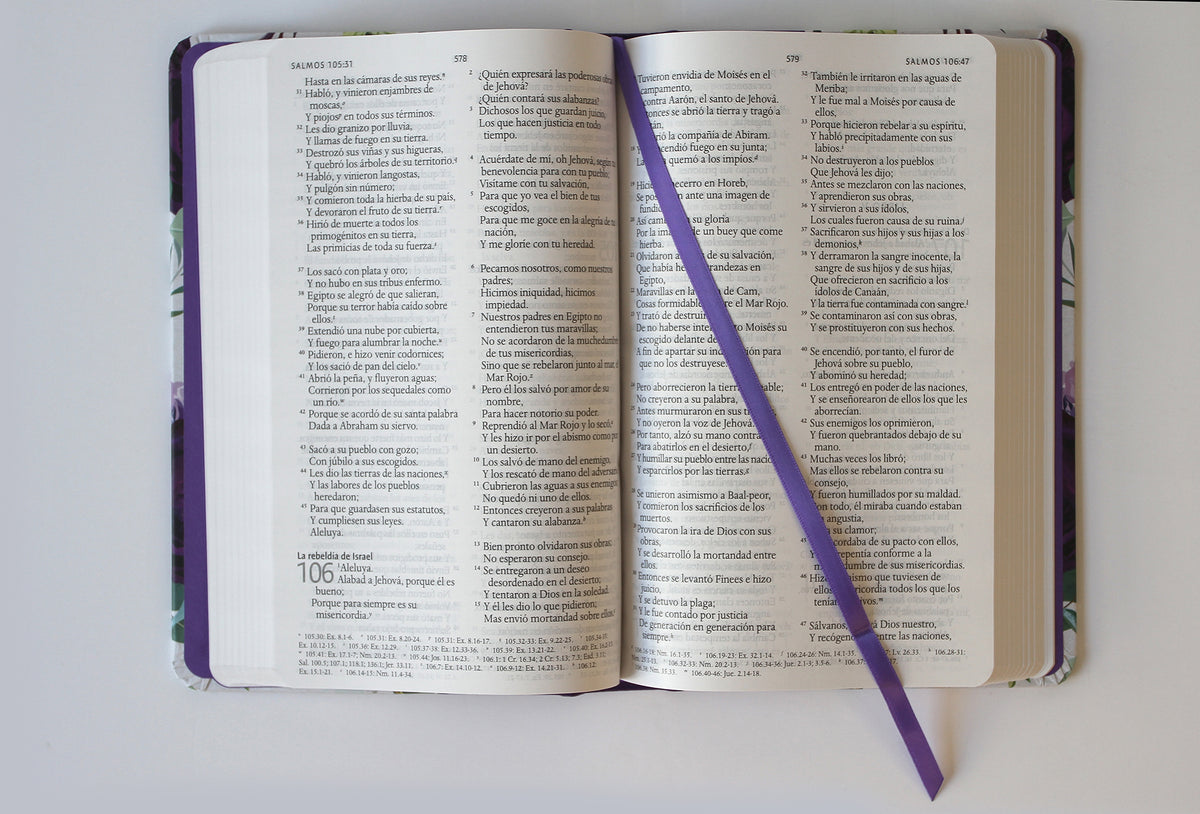 SALMOS 105:31
578
Hasta en las cámaras de sus reyes.
31 Habló, y vinieron enjambres de
moscas,
Y piojos en todos sus términos.
32 Les dio granizo por lluvia,
Y llamas de fuego en su tierra.
33 Destrozó sus viñas y sus higueras,
Y quebró los árboles de su territorio.
34 Habló, y vinieron langostas,
Y pulgón sin número;
35 Y comieron toda la hierba de su país,
Y devoraron el fruto de su tierra.
36 Hirió de muerte a todos los
primogénitos en su tierra,
Las primicias de toda su fuerza.
37 Los sacó con plata y oro;
Y no hubo en sus tribus enfermo.
38 Egipto se alegró de que salieran,
Porque su terror había caído sobre
ellos.
39 Extendió una nube por cubierta,
Y fuego para alumbrar la noche.
40 Pidieron, e hizo venir codornices;
Y los sació de pan del cielo.
41 Abrió la peña, y fluyeron aguas;
Corrieron por los sequedales como
un río.
42 Porque se acordó de su santa palabra
Dada a Abraham su siervo.
43 Sacó a su pueblo con gozo;
Con júbilo a sus escogidos.
44 Les dio las tierras de las naciones,
Y las labores de los pueblos
heredaron;
45 Para que guardasen sus estatutos,
Y cumpliesen sus leyes.
Aleluya.
La rebeldía de Israel
106 1 Aleluya.
Alabad a Jehová, porque él es
bueno;
Porque para siempre es su
misericordia.
2 ¿Quién expresará las poderosas obras
de Jehová?
¿Quién contará sus alabanzas?
3 Dichosos los que guardan juicio,
Los que hacen justicia en todo
tiempo.
4 Acuérdate de mí, oh Jehová, según tu
benevolencia para con tu pueblo;
Visítame con tu salvación,
5 Para que yo vea el bien de tus
escogidos,
Para que me goce en la alegría de tu
nación,
Y me gloríe con tu heredad.
6 Pecamos nosotros, como nuestros
padres;
Hicimos iniquidad, hicimos
impiedad.
7 Nuestros padres en Egipto no
entendieron tus maravillas;
No se acordaron de la muchedumbre
de tus misericordias,
Sino que se rebelaron junto al mar, el
Mar Rojo.
8 Pero él los salvó por amor de su
nombre,
Para hacer notorio su poder.
9 Reprendió al Mar Rojo y lo secó,
Y les hizo ir por el abismo como por
un desierto.
10 Los salvó de mano del enemigo,
Y los rescató de mano del adversario
11 Cubrieron las aguas a sus enemigos;
No quedó ni uno de ellos.
12 Entonces creyeron a sus palabras
Y cantaron su alabanza.
13 Bien pronto olvidaron sus obras;
No esperaron su consejo.
14 Se entregaron a un deseo
desordenado en el desierto;
Y tentaron a Dios en la soledad.
15 Y él les dio lo que pidieron;
Mas envió mortandad sobre ellos.
105.30: Ex. 8.1-6. 105.31: Ex. 8.20-24. 105.31: Ex. 8.16-17. 105.32-33: Ex. 9.22-25. 105.34-35:
Ex. 10.12-15. 105.36: Ex. 12.29. 105.37-38: Ex. 12.33-36. 105.39: Ex. 13.21-22. 105.40: Ex. 16.2-15.
105.41: Ex. 17.1-7; Nm. 20.2-13. 105.44: Jos. 11.16-23. 106.1: 1 Cr. 16.34; 2 Cr. 5.13; 7.3; Esd. 3.11;
Sal. 100.5; 107.1; 118.1; 136.1; Jer. 33.11. 106.7: Ex. 14.10-12. 106.9-12: Ex. 14.21-31. 106.12:
Ex. 15.1-23. 106.14-15: Nm. 11.4-34.
579
SALMOS 106:47
Tuvieron envidia de Moisés en el
campamento,
contra Aarón, el santo de Jehová.
se abrió la tierra y tragó a
la compañía de Abiram.
fuego en su junta;
quemó a los impíos.
19 becerro en Horeb,
Se ante una imagen de
20 Así su gloria
Por la de un buey que come
hierba.
21 Olvidaron de su salvación,
Que había grandezas en
Egipto,
22 Maravillas en la de Cam,
Cosas formidables el Mar Rojo.
23 Y trató de
De no haberse Moisés su
escogido delante de
A fin de apartar su para
que no los destruyese.
24 Pero aborrecieron la tierra
No creyeron a su palabra,
25 Antes murmuraron en sus
Y no oyeron la voz de Jehová.
26 Por tanto, alzó su mano contra
Para abatirlos en el desierto,
27 Y humillar su pueblo entre las
Y esparcirlos por las tierras.
28 Se unieron asimismo a Baal-peor,
Y comieron los sacrificios de los
muertos.
29 Provocaron la ira de Dios con sus
obras,
Y se desarrolló la mortandad entre
ellos.
30 Entonces se levantó Finees e hizo
juicio,
Y se detuvo la plaga;
31 Y le fue contado por justicia
De generación en generación para
siempre.
32 También le irritaron en las aguas de
Meriba;
Y le fue mal a Moisés por causa de
ellos,
33 Porque hicieron rebelar a su espíritu,
Y habló precipitadamente con sus
labios.
34 No destruyeron a los pueblos
Que Jehová les dijo;
35 Antes se mezclaron con las naciones,
Y aprendieron sus obras,
36 Y sirvieron a sus ídolos,
Los cuales fueron causa de su ruina.
37 Sacrificaron sus hijos y sus hijas a los
demonios,
38 Y derramaron la sangre inocente, la
sangre de sus hijos y de sus hijas,
Que ofrecieron en sacrificio a los
ídolos de Canaán,
Y la tierra fue contaminada con sangre.
39 Se contaminaron así con sus obras,
Y se prostituyeron con sus hechos.
40 Se encendió, por tanto, el furor de
Jehová sobre su pueblo,
Y abominó su heredad;
41 Los entregó en poder de las naciones,
Y se enseñorearon de ellos los que les
aborrecían.
42 Sus enemigos los oprimieron,
Y fueron quebrantados debajo de su
mano.
43 Muchas veces los libró;
Mas ellos se rebelaron contra su
consejo,
Y fueron humillados por su maldad.
todo, él miraba cuando estaban
angustia,
su clamor;
45 de su pacto con ellos,
conforme a la
de sus misericordias.
46 que tuviesen de
todos los que los
47 Sálvanos, Dios nuestro,
Y entre las naciones,
106.16-18: Nm. 16.1-35. 106.19-23: Ex. 32.1-14. 106.24-26: Nm. 14.1-35. Lv. 26.33. 106.28-31:
Nm. 25.1-13. 106.32-33: Nm. 20.2-13. 106.34-36: Jue. 2.1-3; 3.5-6. 106.37:
Nm. 35.33. 106.40-46: Jue. 2.14-18.